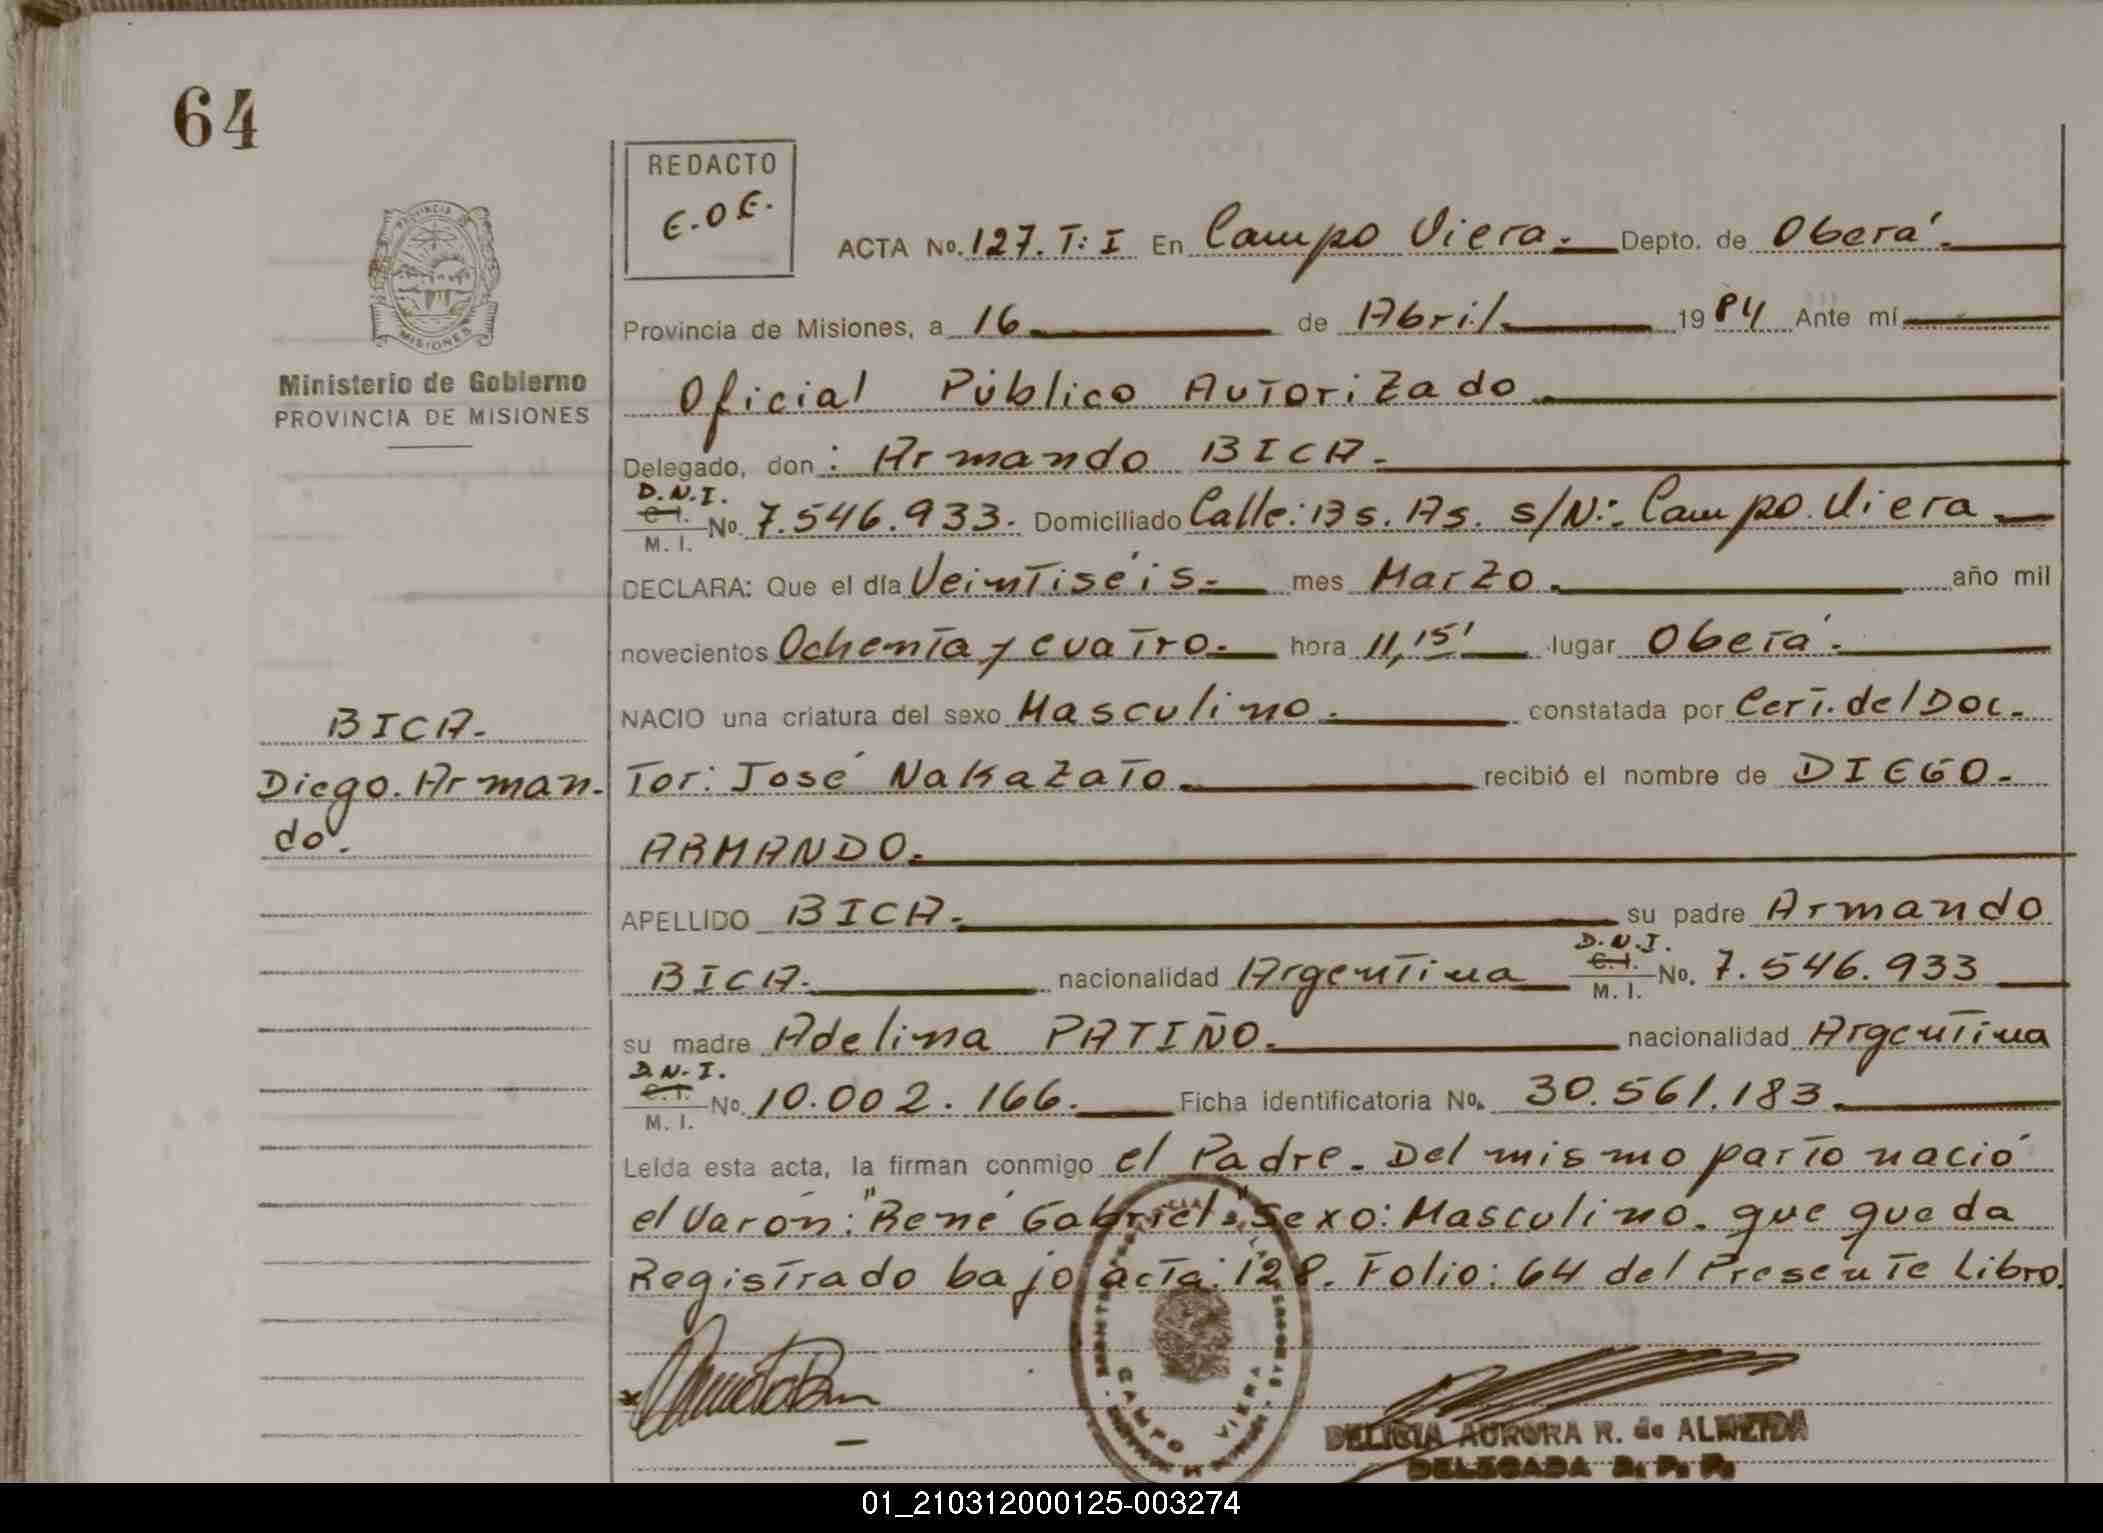 64
REDACTO
E.O.E.
ACTA No. 127. T: I En Campo Viera. Depto. de Oberá.
Provincia de Misiones, a 16 de Abril. 1984 Ante mí
PROVINCIA
MISIONES
Ministerio de Gobierno
PROVINCIA DE MISIONES
Oficial Público Autorizado
Delegado, don: Armando BICA.
D.N.I.
C. I.
M. I.
No. 7.546.933. Domiciliado Calle: Bs. As. s/N: Campo Viera
DECLARA: Que el día Veintiséis. mes Marzo. año mil
novecientos Ochenta y cuatro. hora 11,15' lugar Oberá.
NACIO una criatura del sexo Masculino. constatada por Cert. del Doc.
BICA.
Diego. Arman.
do.
Tor: José Nakazato recibió el nombre de DIEGO.
ARMANDO.
APELLIDO BICA. su padre Armando
BICA. nacionalidad Argentina D.N.I. C. I. M. I. No. 7.546.933
su madre Adelina PATIÑO. nacionalidad Argentina
D.N.I.
C. I.
M. I.
No. 10.002.166. Ficha identificatoria No. 30.561.183.
Leída esta acta, la firman conmigo el Padre. Del mismo parto nació
el Varón: "René Gabriel." Sexo: Masculino. que queda
Registrado bajo acta: 128. Folio: 64 del Presente Libro.
CAMPO VIERA
DELICIA AURORA R. de ALMEIDA
DELEGADA R. P. P.
01_210312000125-003274